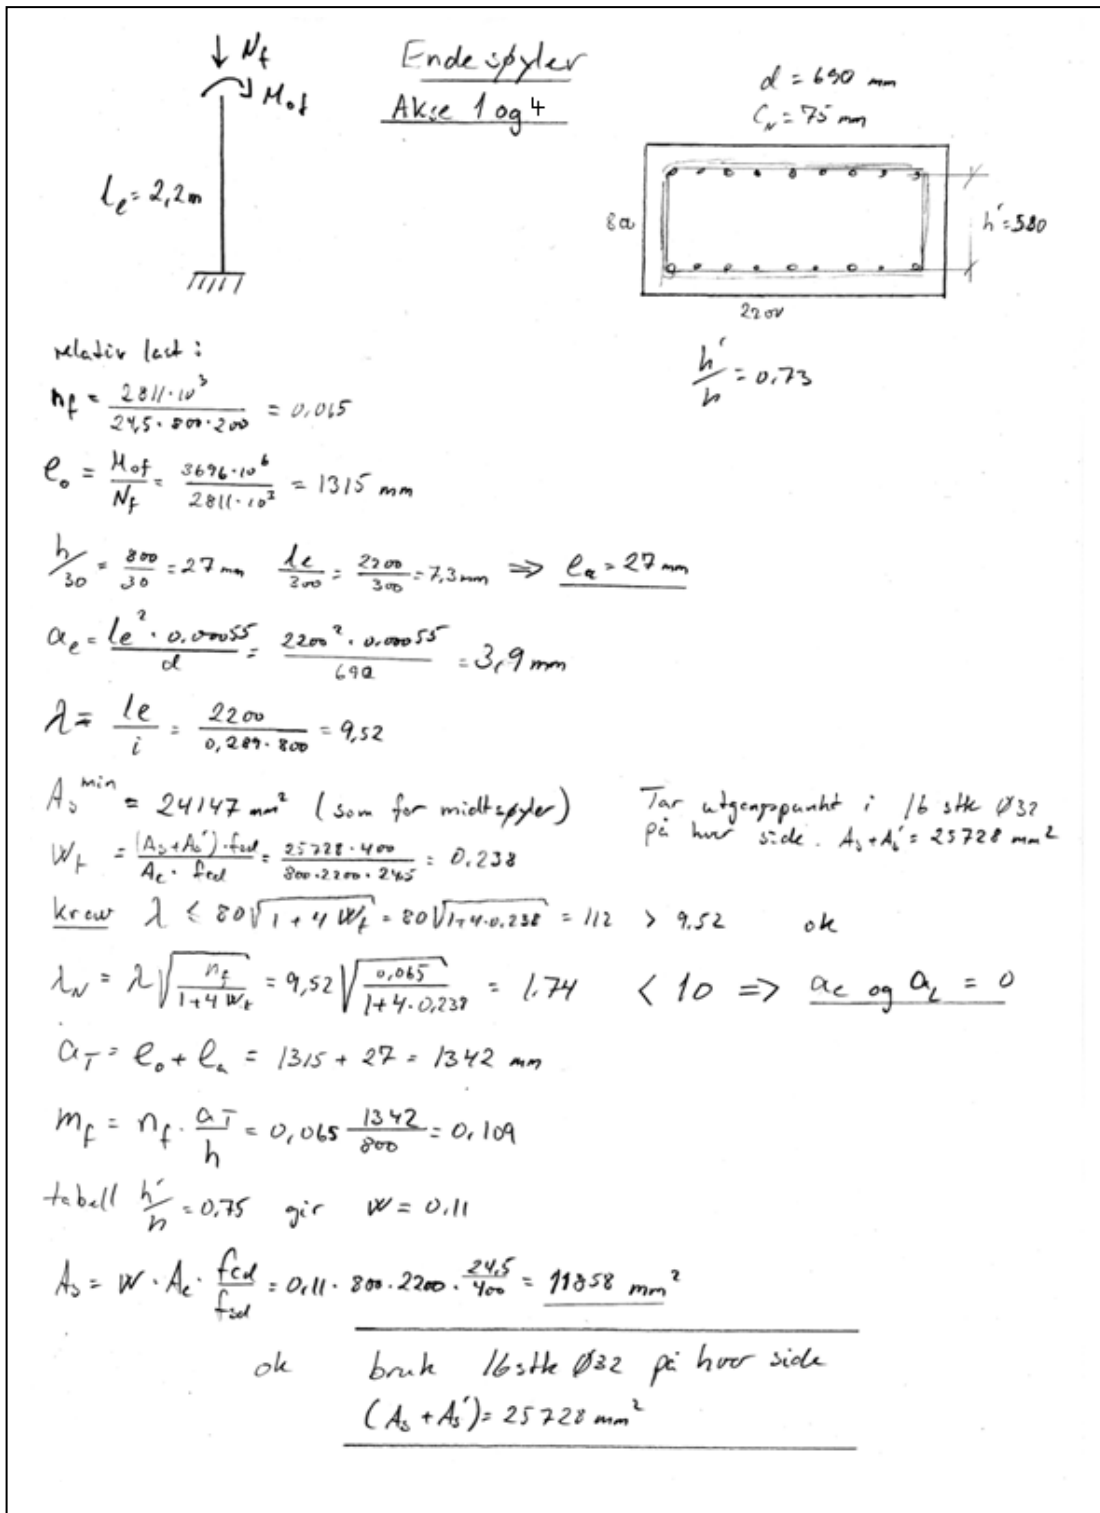 Endesøyler
Akse 1 og 4
N_f
M_of
l_e = 2,2m
d = 690 mm
C_N = 75 mm
h' = 580
h'/h = 0,73
relativ last :
n_f = 2811·10³ / 24,5·800·200 = 0,065
e_o = M_of/N_f = 3696·10⁶ / 2811·10³ = 1315 mm
h/30 = 800/30 = 27 mm l_e/300 = 2200/300 = 7,3 mm ⇒ e_a = 27 mm
a_e = l_e²·0,00055 / d = 2200²·0,00055 / 690 = 3,9 mm
λ = l_e/i = 2200 / 0,289·800 = 9,52
A_s^min = 24147 mm² (som for midtsøyler)
Tar utgangspunkt i 16 stk Ø32
på hver side. A_s + A_s' = 25728 mm²
W_t = (A_s + A_s')·f_sd / A_c·f_cd = 25728·400 / 800·2200·24,5 = 0,238
krav λ ≤ 80√(1 + 4 W_t) = 80√(1+4·0,238) = 112 > 9,52 ok
λ_N = λ√(n_f / 1+4 W_t) = 9,52√(0,065 / 1+4·0,238) = 1,74 < 10 ⇒ a_e og a_L = 0
a_T = e_o + e_a = 1315 + 27 = 1342 mm
m_f = n_f · a_T/h = 0,065 1342/800 = 0,109
tabell h'/h = 0,75 gir W = 0,11
A_s = W · A_c · f_cd/f_sd = 0,11·800·2200·24,5/400 = 11858 mm²
ok bruk 16 stk Ø32 på hver side
(A_s + A_s') = 25728 mm²